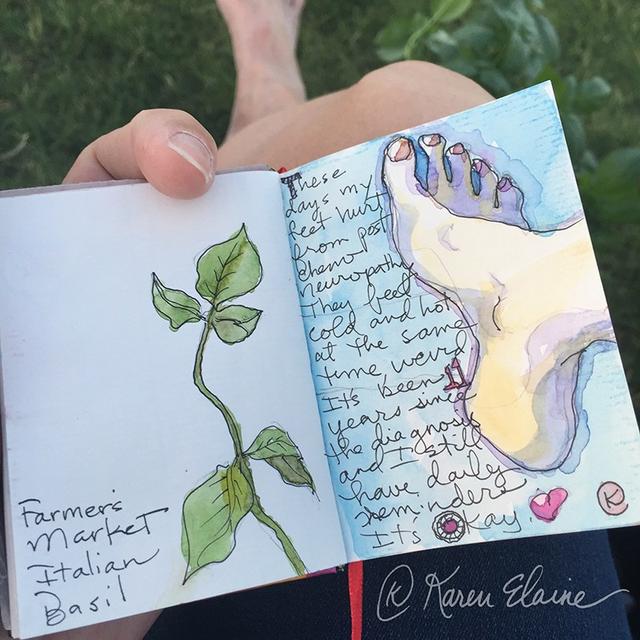 Farmer's
Market
Italian
Basil
These
days my
feet hurt
from post
chemo
neuropathy.
They feel
cold and hot
at the same
time weird
It's been 11
years since
the diagnosis
and I still
have daily
reminders
It's Okay.
K
K Karen Elaine